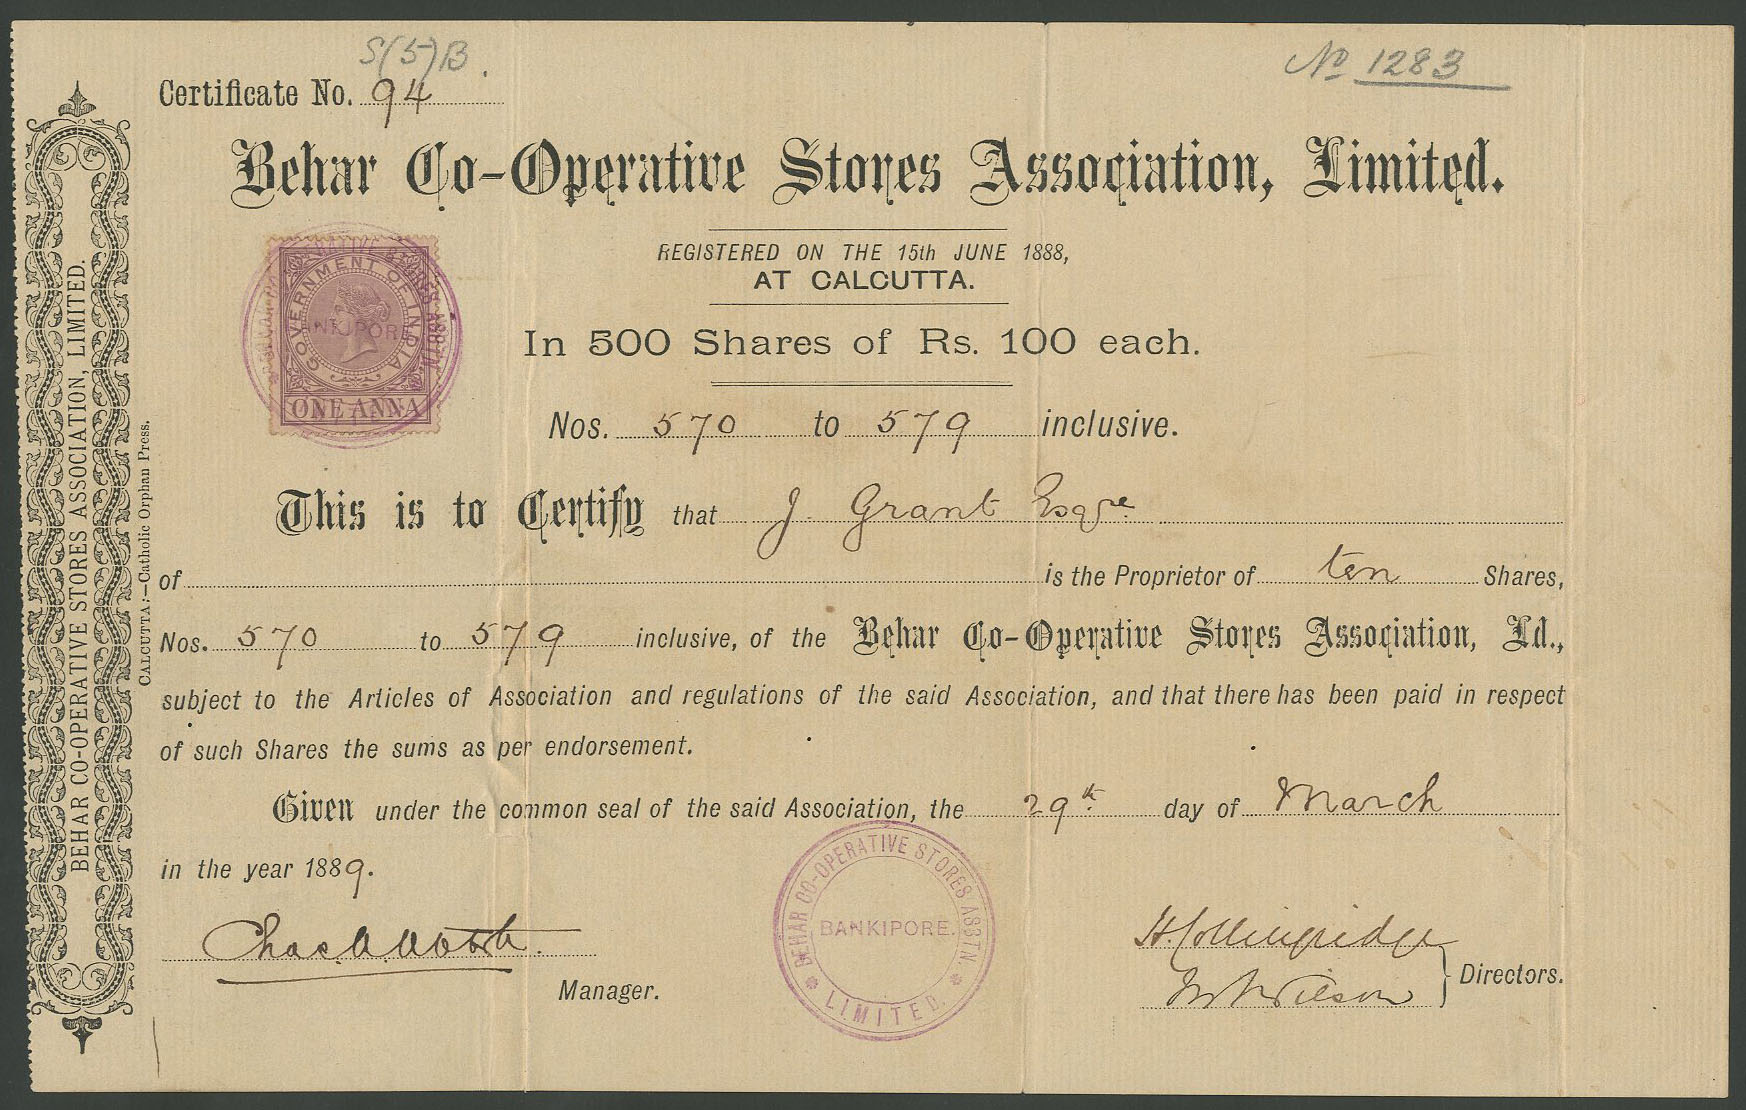 S(5)B.
No 1283
Certificate No. 94
Behar Co-Operative Stores Association, Limited.
REGISTERED ON THE 15th JUNE 1888,
AT CALCUTTA.
GOVERNMENT OF INDIA
ONE ANNA
In 500 Shares of Rs. 100 each.
Nos. 570 to 579 inclusive.
This is to Certify that J. Grant Esqre.
of is the Proprietor of ten Shares,
Nos. 570 to 579 inclusive, of the Behar Co-Operative Stores Association, Ld.,
subject to the Articles of Association and regulations of the said Association, and that there has been paid in respect
of such Shares the sums as per endorsement.
Given under the common seal of the said Association, the 29th. day of March
in the year 1889.
BEHAR CO-OPERATIVE STORES ASSTN.
BANKIPORE.
LIMITED.
H. Collingridge
Wilson
Directors.
Manager.
BEHAR CO-OPERATIVE STORES ASSOCIATION, LIMITED.
CALCUTTA:—Catholic Orphan Press.